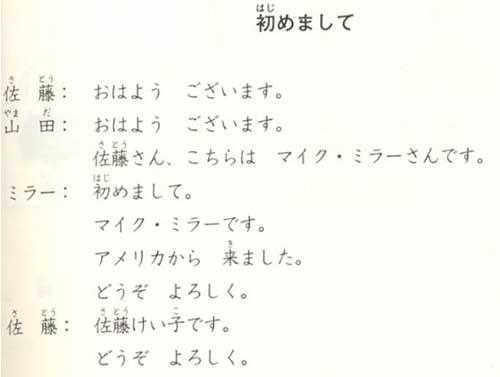 初めまして
佐藤： おはよう ございます。
山田： おはよう ございます。
佐藤さん、こちらは マイク・ミラーさんです。
ミラー： 初めまして。
マイク・ミラーです。
アメリカから 来ました。
どうぞ よろしく。
佐藤： 佐藤けい子です。
どうぞ よろしく。